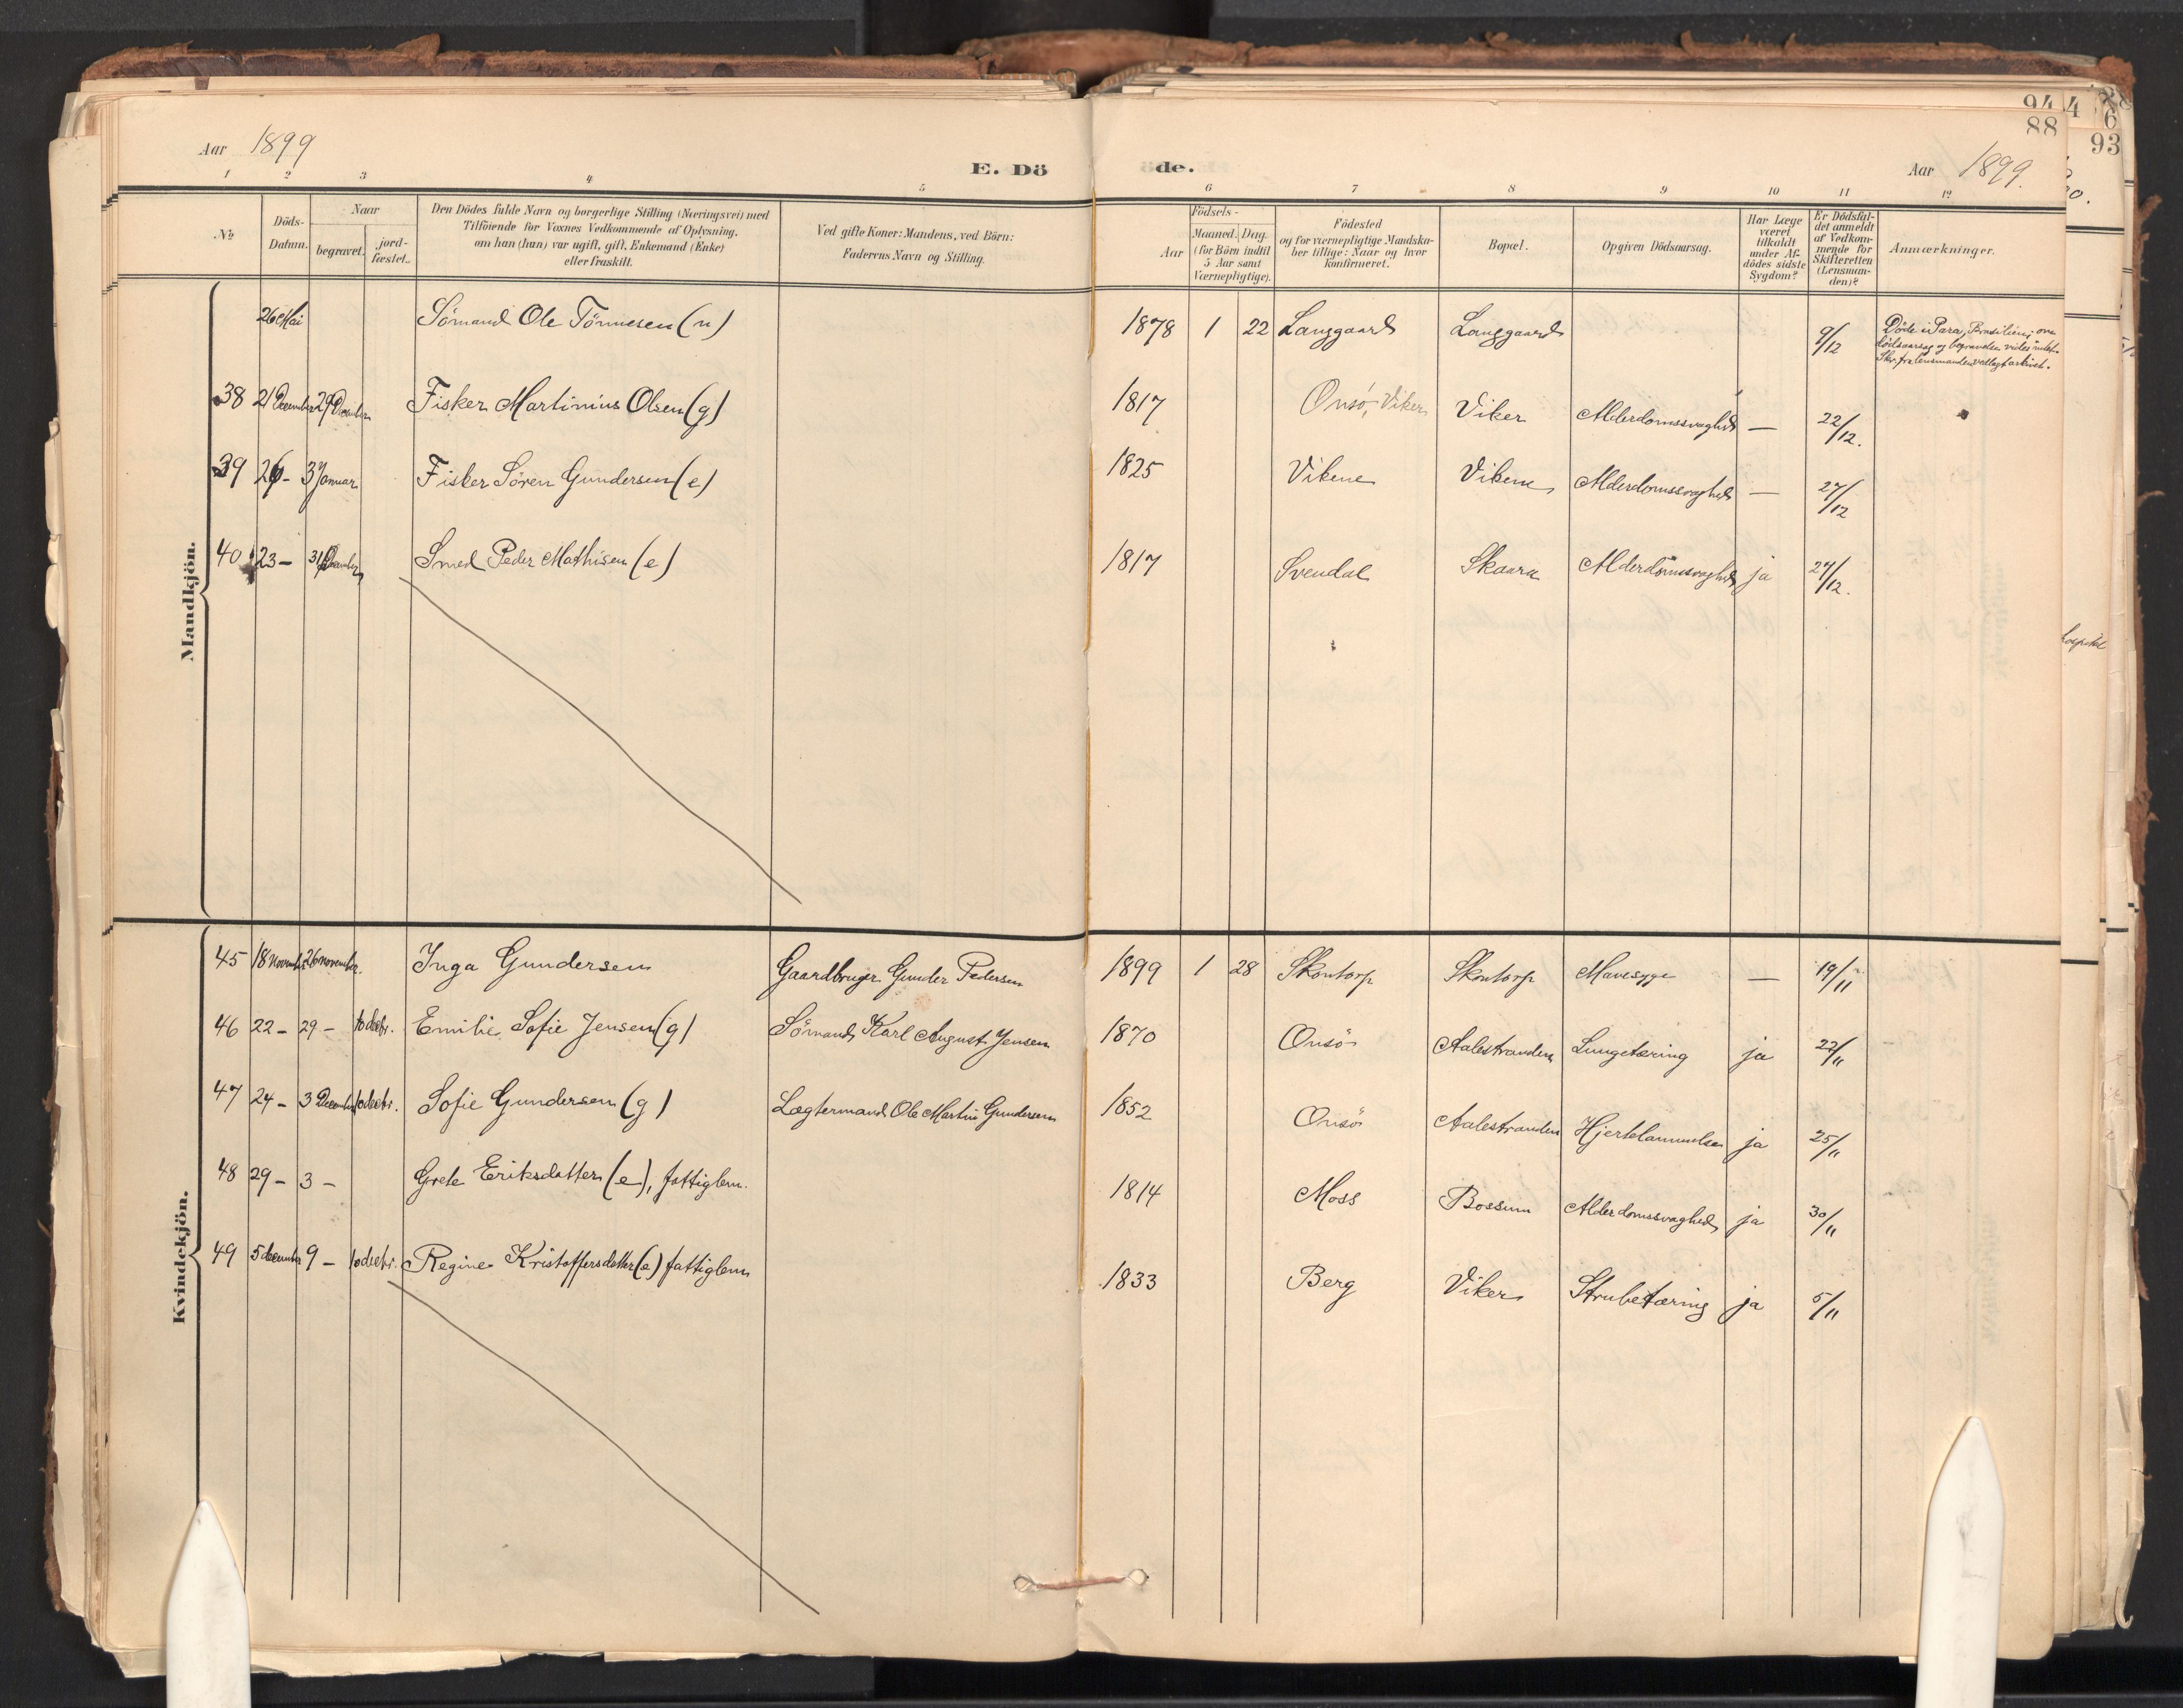 94 4
88 6
93
Aar 1899
E. Dö de.
Aar 1899.
1 2 3 4 5 6 7 8 9 10 11 12
№
Döds-
Datum.
Naar
begravet.
jord-
fæstet.
Den Dödes fulde Navn og borgerlige Stilling (Næringsvei) med
Tilföiende for Voxnes Vedkommende af Oplysning,
om han (hun) var ugift, gift, Enkemand (Enke)
eller fraskilt.
Ved gifte Koner: Mandens, ved Börn:
Faderens Navn og Stilling.
Födsels-
Aar
Maaned. Dag.
(for Börn indtil
5 Aar samt
Værnepligtige).
Födested
og for værnepligtige Mandska-
ber tillige: Naar og hvor
konfirmeret.
Bopæl.
Opgiven Dödsaarsag.
Har Læge
været
tilkaldt
under Af-
dödes sidste
Sygdom?
Er Dödsfal-
det anmeldt
af Vedkom-
mende for
Skifteretten
(Lensman-
den)?
Anmærkninger.
Mandkjön.
26 Mai Sömand Ole Tönnesen (u) 1878 1 22 Langgaard Langgaard 9/12
Døde i Para, Brasilien; om
dödsaarsag og begravelse vides intet.
Skr. fra lensmanden vedlagt arkivet.
38 21 December 29 December Fisker Martinius Olsen (g) 1817 Onsö, Viker Viker Alderdomssvaghed — 22/12.
39 26 - 3 Januar Fisker Sören Gundersen (e) 1825 Vikene Vikene Alderdomssvaghed — 27/12
40 23 - 31 December Smed Peder Mathisen (e) 1817 Svendal Skaara Alderdomssvaghed ja 27/12.
Kvindekjön.
45 18 November 26 november. Inga Gundersen Gaardbruger Gunder Pedersen 1899 1 28 Skontorp Skontorp Mavesyge — 19/11
46 22 - 29 - 10 decbr. Emilie Sofie Jensen (g) Sömand Karl August Jensen 1870 Onsö Aalestranden Lungetæring ja 22/11
47 24 - 3 December 10 decbr. Sofie Gundersen (g) Lægtermand Ole Martin Gundersen 1852 Onsö Aalestranden Hjertelammelse ja 25/11
48 29 - 3 - Grete Eriksdatter (e), fattiglem. 1814 Moss Bossum Alderdomssvaghed ja 30/11
49 5 december 9 - 10 decbr. Regine Kristoffersdatter (e) fattiglem 1833 Berg Viker Strubetæring ja 5/11